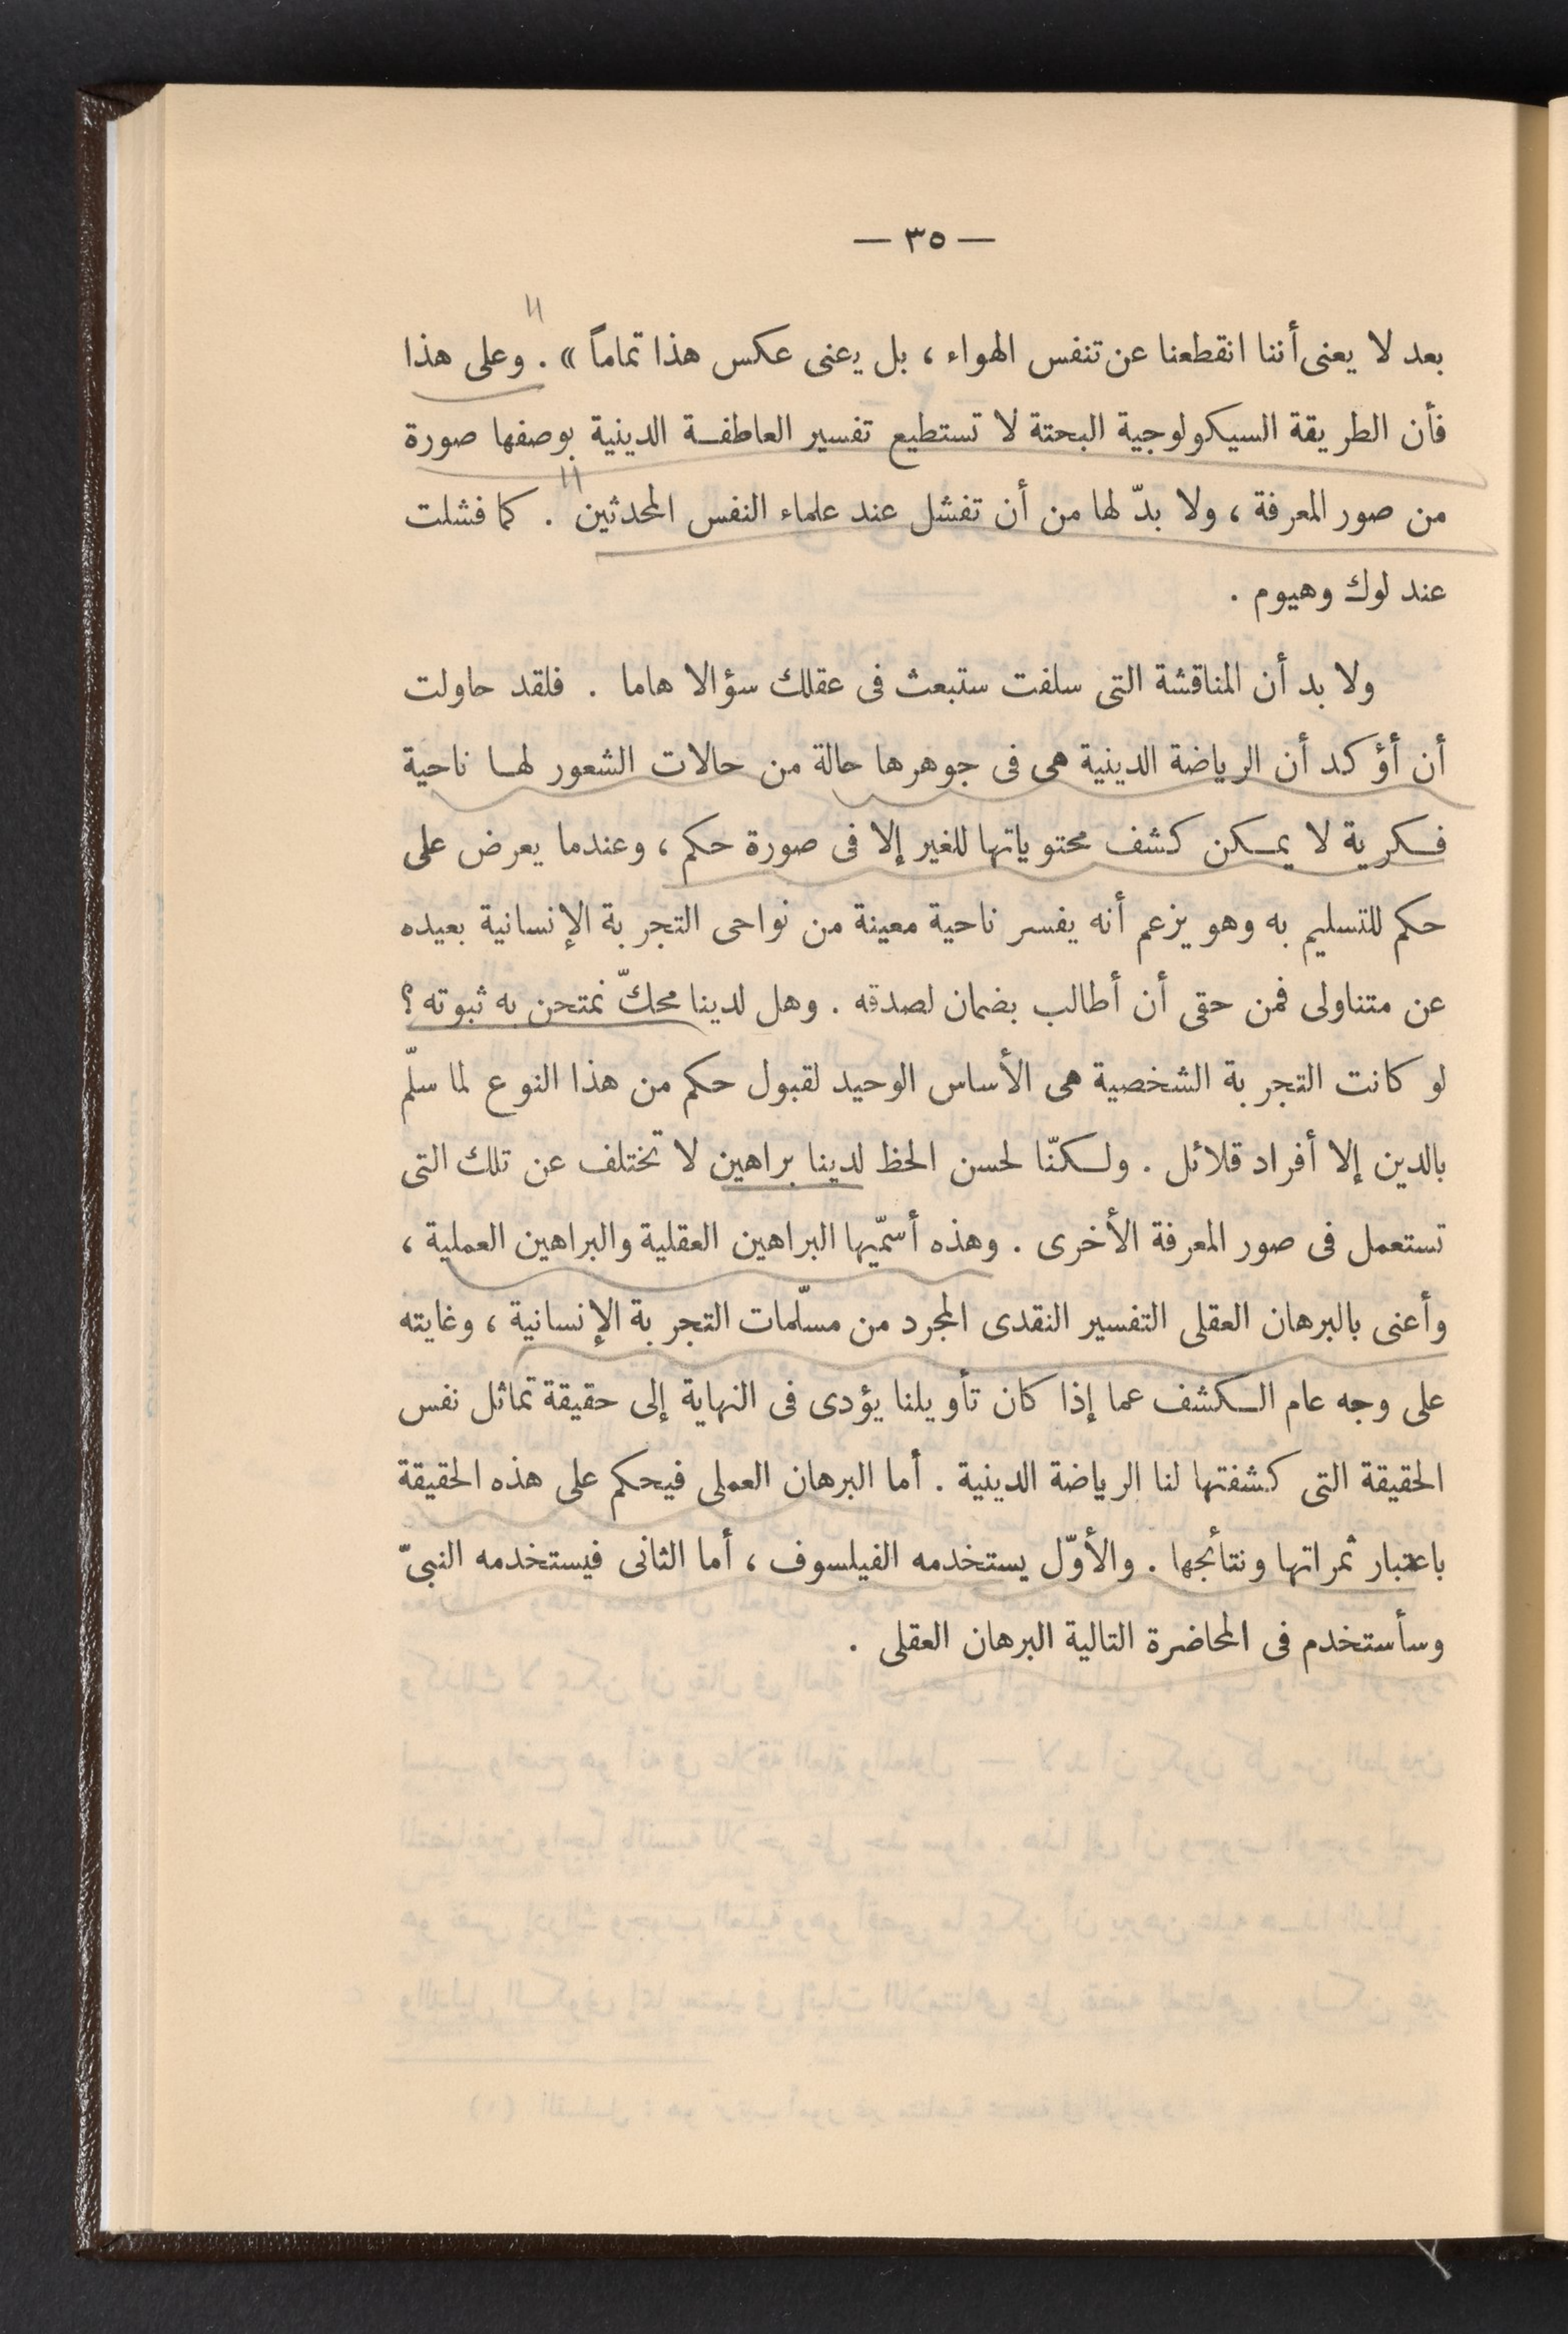 — ٣٥ —
بعد لا يعنى أننا انقطعنا عن تنفس الهواء ، بل يعنى عكس هذا تماماً » . وعلى هذا
فأن الطريقة السيكولوجية البحتة لا تستطيع تفسير العاطفة الدينية بوصفها صورة
من صور المعرفة ، ولا بدّ لها من أن تفشل عند علماء النفس المحدثين . كما فشلت
عند لوك وهيوم .
ولا بد أن المناقشة التى سلفت ستبعث فى عقلك سؤالا هاما . فلقد حاولت
أن أؤكد أن الرياضة الدينية هى فى جوهرها حالة من حالات الشعور لها ناحية
فكرية لا يمكن كشف محتوياتها للغير إلا فى صورة حكم ، وعندما يعرض على
حكم للتسليم به وهو يزعم أنه يفسر ناحية معينة من نواحى التجربة الإنسانية بعيده
عن متناولى فمن حقى أن أطالب بضمان لصدقه . وهل لدينا محكّ نمتحن به ثبوته ؟
لو كانت التجربة الشخصية هى الأساس الوحيد لقبول حكم من هذا النوع لما سلّم
بالدين إلا أفراد قلائل . ولكنّا لحسن الحظ لدينا براهين لا تختلف عن تلك التى
تستعمل فى صور المعرفة الأخرى . وهذه أسمّيها البراهين العقلية والبراهين العملية ،
وأعنى بالبرهان العقلى التفسير النقدى المجرد من مسلّمات التجربة الإنسانية ، وغايته
على وجه عام الكشف عما إذا كان تأويلنا يؤدى فى النهاية إلى حقيقة تماثل نفس
الحقيقة التى كشفتها لنا الرياضة الدينية . أما البرهان العملى فيحكم على هذه الحقيقة
باعتبار ثمراتها ونتأئجها . والأوّل يستخدمه الفيلسوف ، أما الثانى فيستخدمه النبىّ
وسأستخدم فى المحاضرة التالية البرهان العقلى .